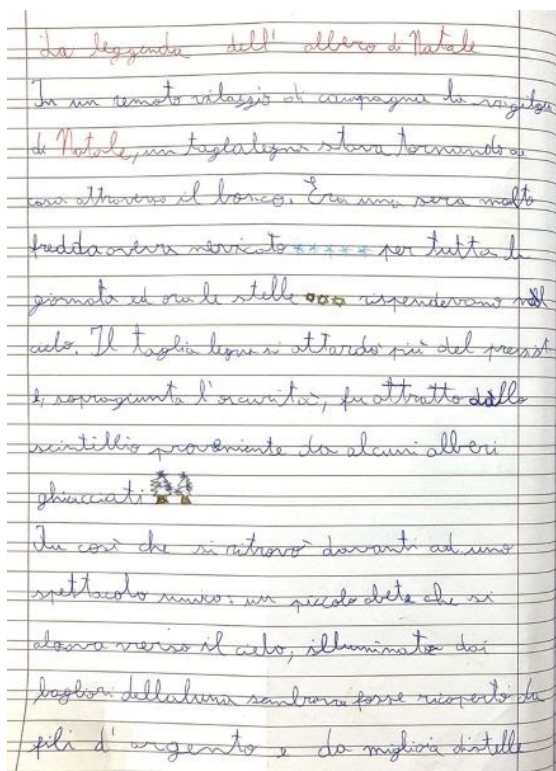 La leggenda dell' albero di Natale
In un remoto vilaggio di campagna la vigilia
di Natale, un taglialegni stava tornando a
casa attraverso il bosco. Era una sera molto
fredda aveva nevicato per tutta la
giornata ed ora le stelle rispendevano nel
cielo. Il taglia legna si attardò più del previst
e, sopragiunta l'oscurità, fu attratto dallo
scintillio proveniente da alcuni alberi
ghiacciati
Fu così che si ritrovò davanti ad uno
spettacolo unico: un piccolo abete che si
alzava verso il cielo, illuminato dai
bagliori della luna sembrava fosse ricoperto da
fili d' argento e da migliaia di stelle